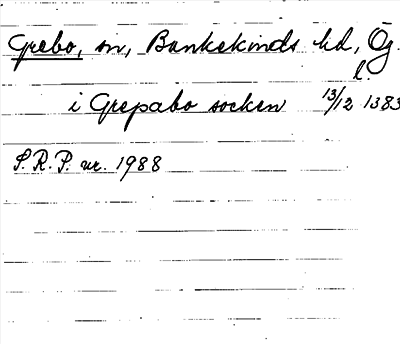 Grebo, sn, Bankekinds hd, Ög.
l.
i Grepabo socken 13/12 1383
S.R.P. nr. 1988